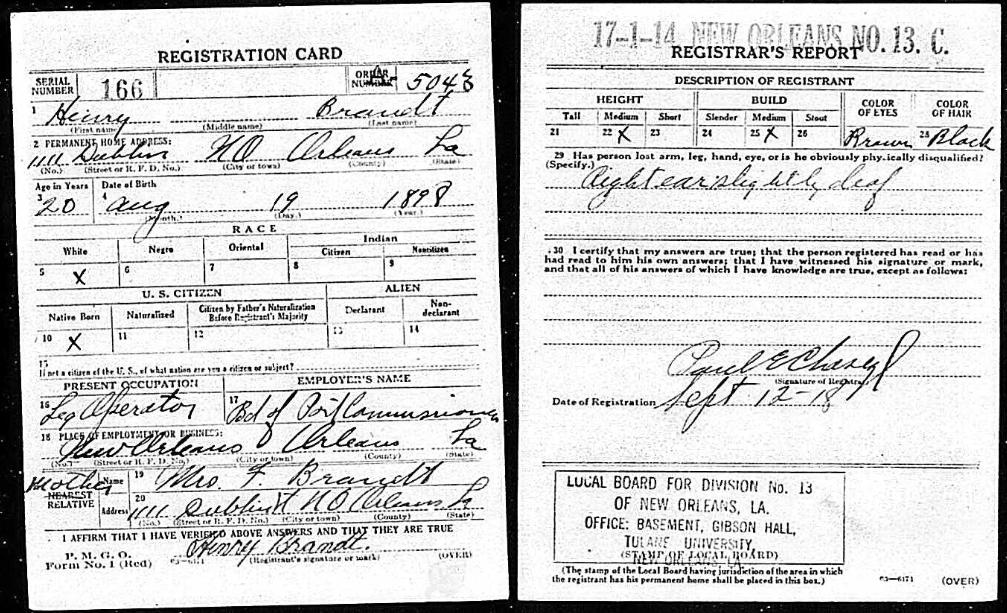 REGISTRATION CARD
SERIAL NUMBER 166 ORDER NUMBER A 5043
1 Henry Brandt
(First name) (Middle name) (Last name)
2 PERMANENT HOME ADDRESS:
1111 Dublin N O Orleans La
(No.) (Street or R. F. D. No.) (City or town) (County) (State)
Age in Years Date of Birth
3 20 4 Aug 19 1898
(Month.) (Day.) (Year.)
RACE
White Negro Oriental Indian
Citizen Noncitizen
5 X 6 7 8 9
U. S. CITIZEN ALIEN
Native Born Naturalized Citizen by Father's Naturalization Before Registrant's Majority Declarant Non-declarant
10 X 11 12 13 14
15
If not a citizen of the U. S., of what nation are you a citizen or subject?
PRESENT OCCUPATION EMPLOYER'S NAME
16 Operator 17 Bd of Port Commissioners
18 PLACE OF EMPLOYMENT OR BUSINESS:
New Orleans Orleans La
(No.) (Street or R. F. D. No.) (City or town) (County) (State)
Mother Name 19 Mrs. F. Brandt
NEAREST RELATIVE
Address 20 1111 Dublin N O Orleans La
(No.) (Street or R. F. D. No.) (City or town) (County) (State)
I AFFIRM THAT I HAVE VERIFIED ABOVE ANSWERS AND THAT THEY ARE TRUE
P. M. G. O.
Form No. 1 (Red) Henry Brandt.
03-6171 (Registrant's signature or mark) (OVER)
17-1-14 NEW ORLEANS NO. 13. C.
REGISTRAR'S REPORT
DESCRIPTION OF REGISTRANT
HEIGHT BUILD COLOR OF EYES COLOR OF HAIR
Tall Medium Short Slender Medium Stout
21 22 X 23 24 25 X 26 Brown 28 Black
29 Has person lost arm, leg, hand, eye, or is he obviously physically disqualified?
(Specify.)
Right ear slightly deaf
30 I certify that my answers are true; that the person registered has read or has
had read to him his own answers; that I have witnessed his signature or mark,
and that all of his answers of which I have knowledge are true, except as follows:
Paul E
(Signature of Registrar)
Date of Registration Sept 12-18
LOCAL BOARD FOR DIVISION No. 13
OF NEW ORLEANS, LA.
OFFICE: BASEMENT, GIBSON HALL,
TULANE UNIVERSITY,
(STAMP OF LOCAL BOARD)
NEW ORLEANS, LA.
(The stamp of the Local Board having jurisdiction of the area in which
the registrant has his permanent home shall be placed in this box.)
03-6171 (OVER)